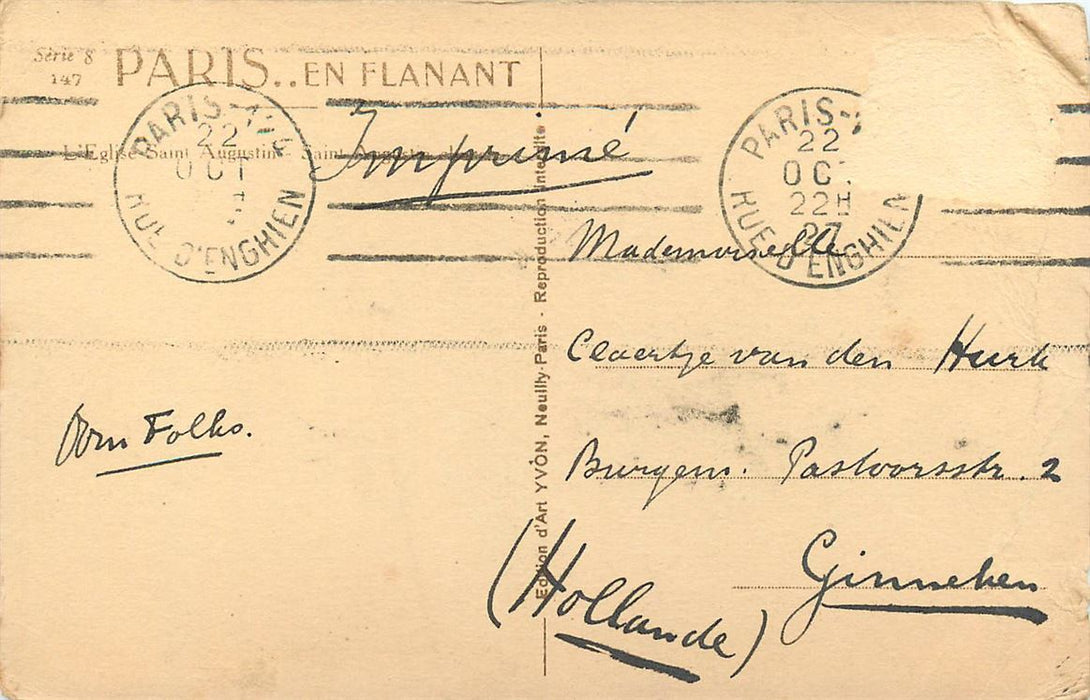 Série 8
147
PARIS.. EN FLANANT
L'Eglise Saint Augustin - Saint
Imprimé
PARIS
22
OCT
RUE D'ENGHIEN
PARIS
22
OCT
22H
RUE D'ENGHIEN
Mademoiselle
Claertje van den Hurk
Burgem. Pastoorsstr. 2
Ginneken
(Hollande)
Oom Folko.
Edition d'Art YVON, Neuilly-Paris - Reproduction interdite